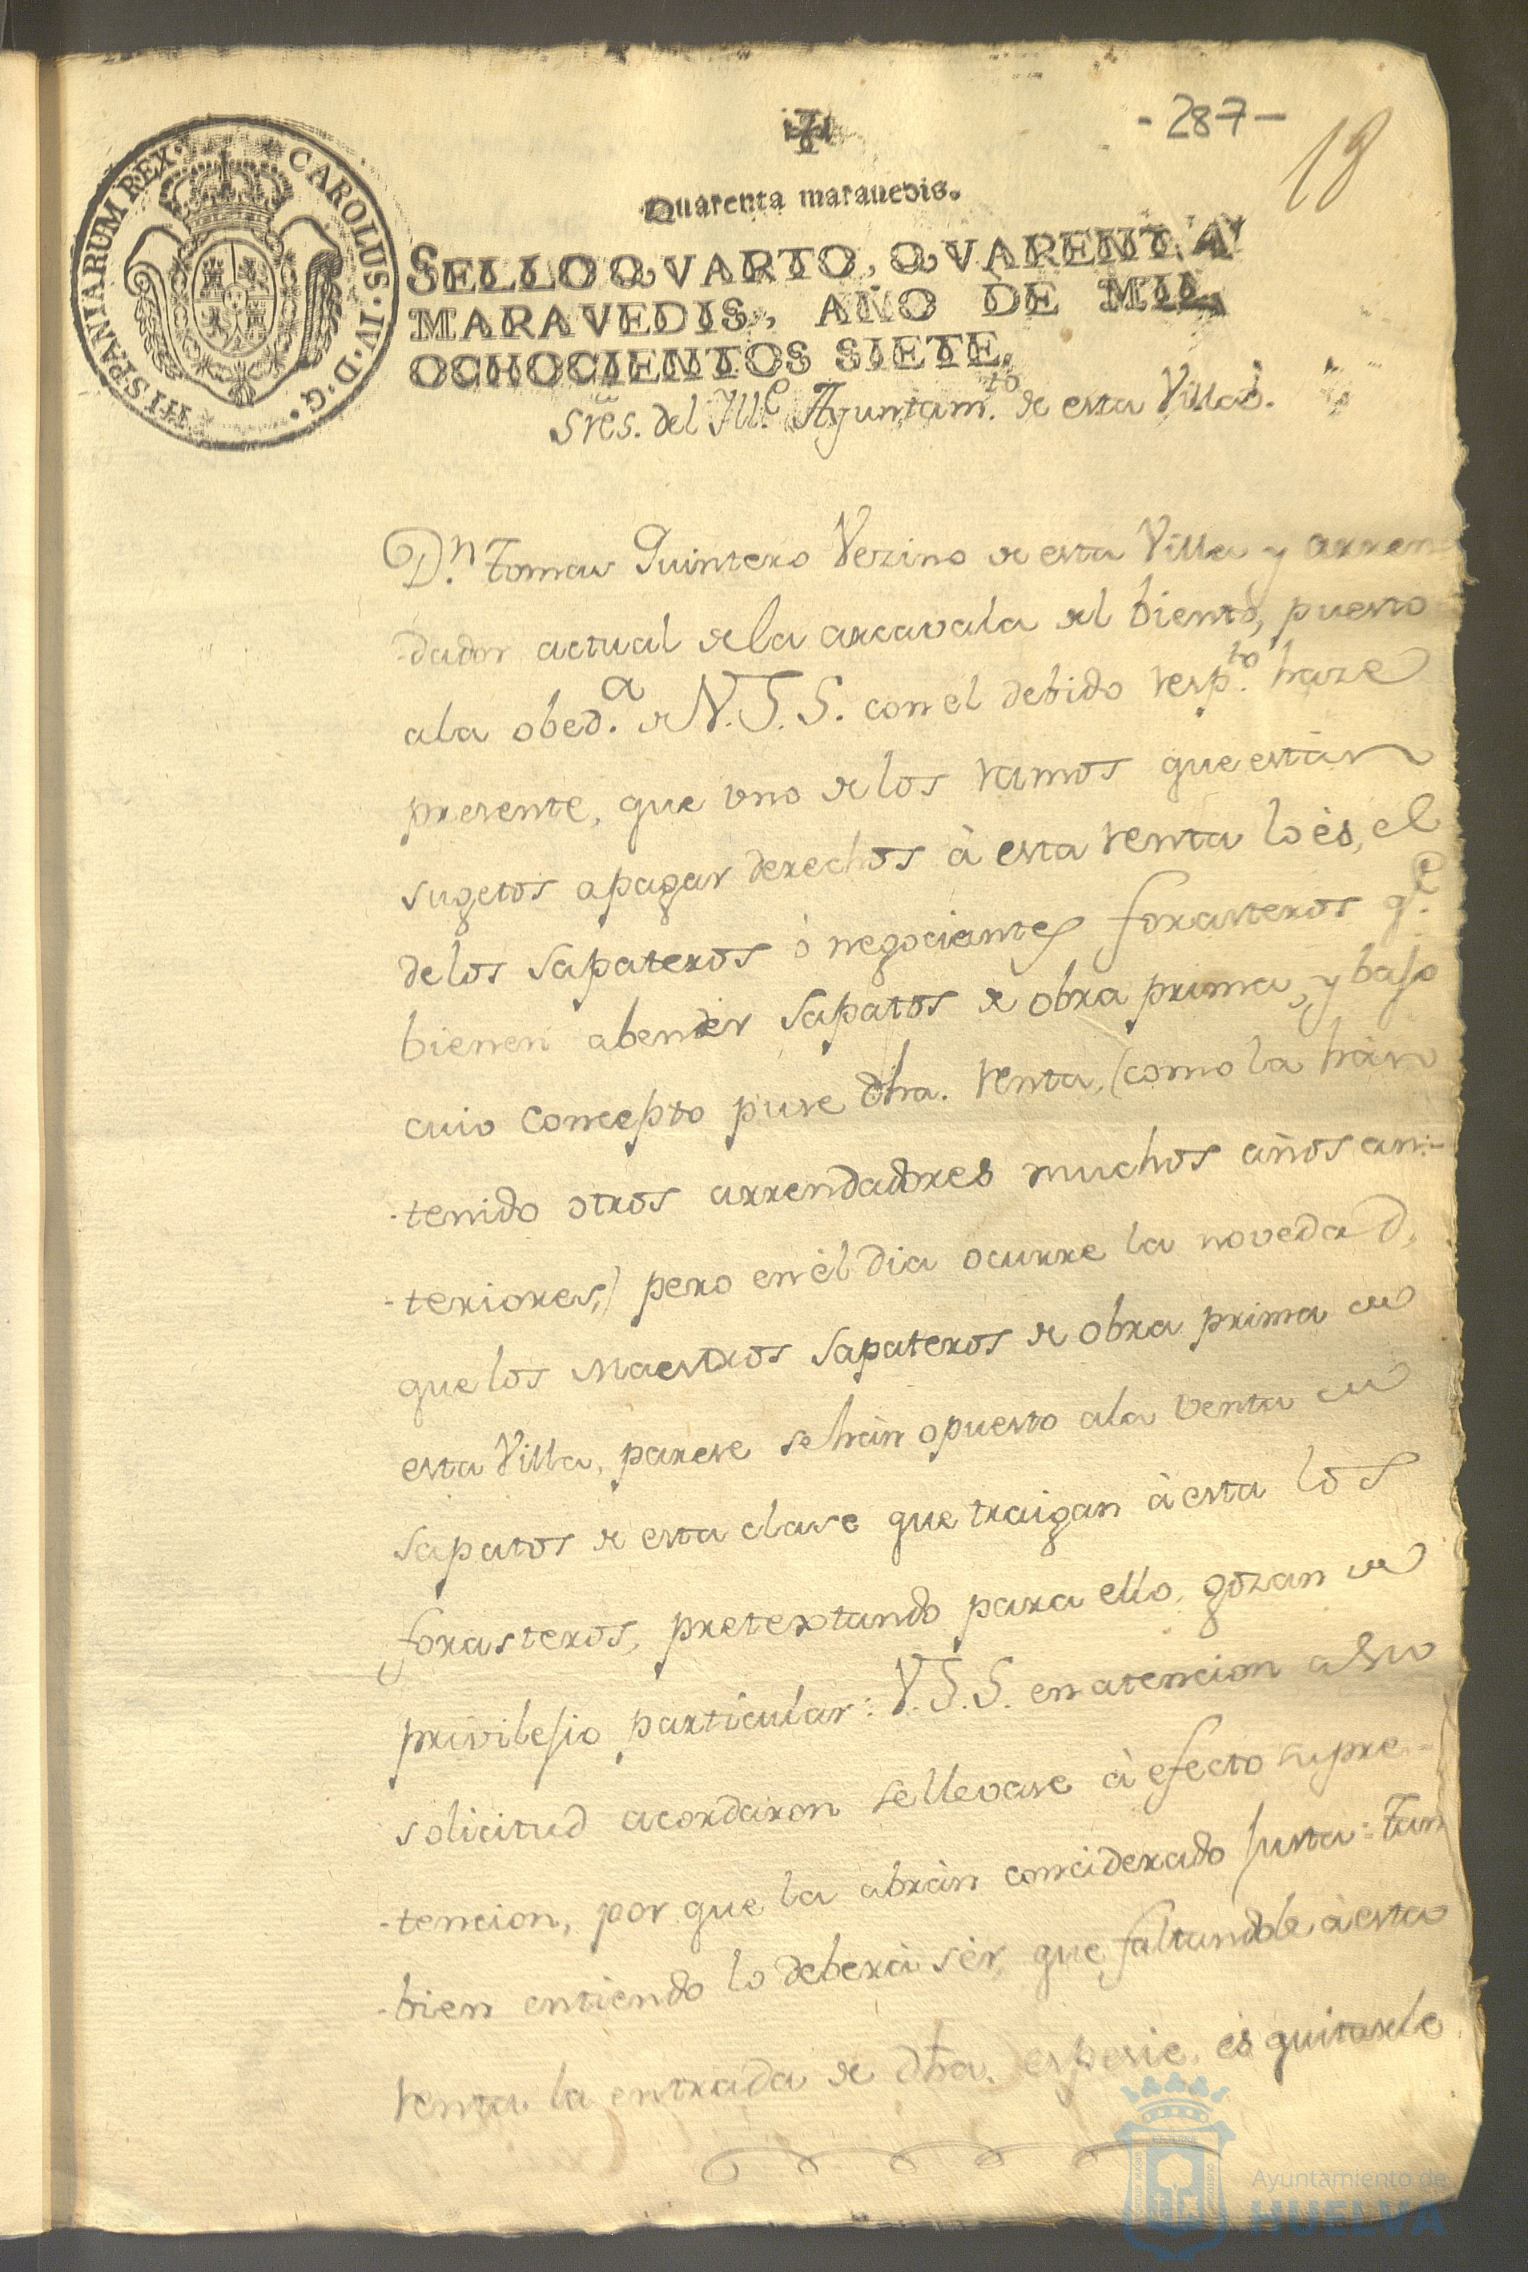 -287-
18
Quarenta marauedis.
HISPANIARUM REX. CAROLUS. IV. D. G.
SELLO QVARTO, QVARENTA
MARAVEDIS, AÑO DE MIL
OCHOCIENTOS SIETE.
Sres. del Ille. Ayuntam.to de esta Villa.
D.n Tomas Quintero Vezino de esta Villa y arren
-dador actual de la arcavala del biento, puesto
ala obed.a de V.S.S. con el debido resp.to haze
presente, que uno de los ramos que están
sugetos a pagar derechos à esta renta lo ès, el
de los sapateros ò negociantes forasteros q.e
bienen abender sapatos de obra prima, y bajo
cuio concepto puse dha. renta, (como la hàn
-tenido otros arrendadores muchos años an-
-teriores,) pero en èl dia ocurre la novedad,
que los Maestros sapateros de obra prima de
esta Villa, parese se hàn opuesto ala venta de
sapatos de esta clase que traigan à esta los
forasteros, pretextando para ello, gozan de
privilejio particular: V.S.S. en atencion a su
solicitud acordaron se llevase à efecto su pre-
-tencion, por que la abràn conciderado justa: tan
-bien entiendo lo deberà sèr, que faltandole à esta
renta la entrada de dha. espesie, ès quitarle
Ayuntamiento de
HUELVA